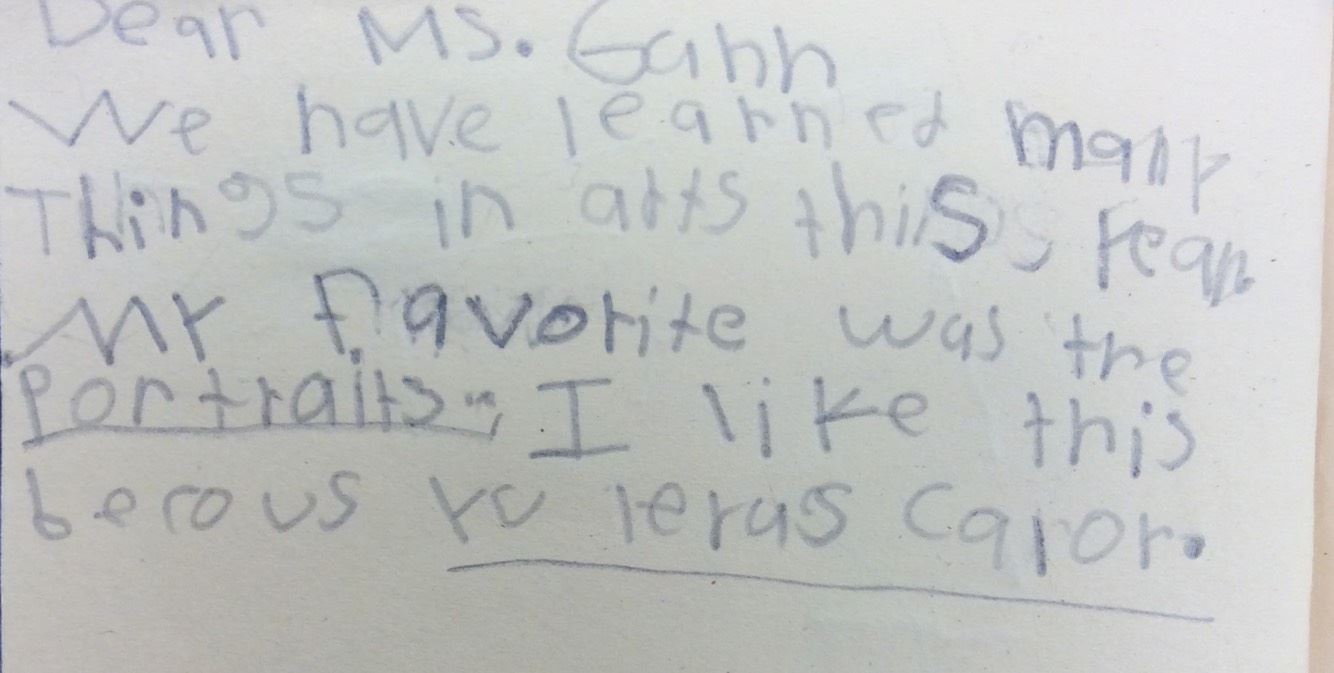 Dear Ms. Gann
We have learned many
Things in arts this year.
My favorite was the
Portraits. I like this
becous yu leras calor.